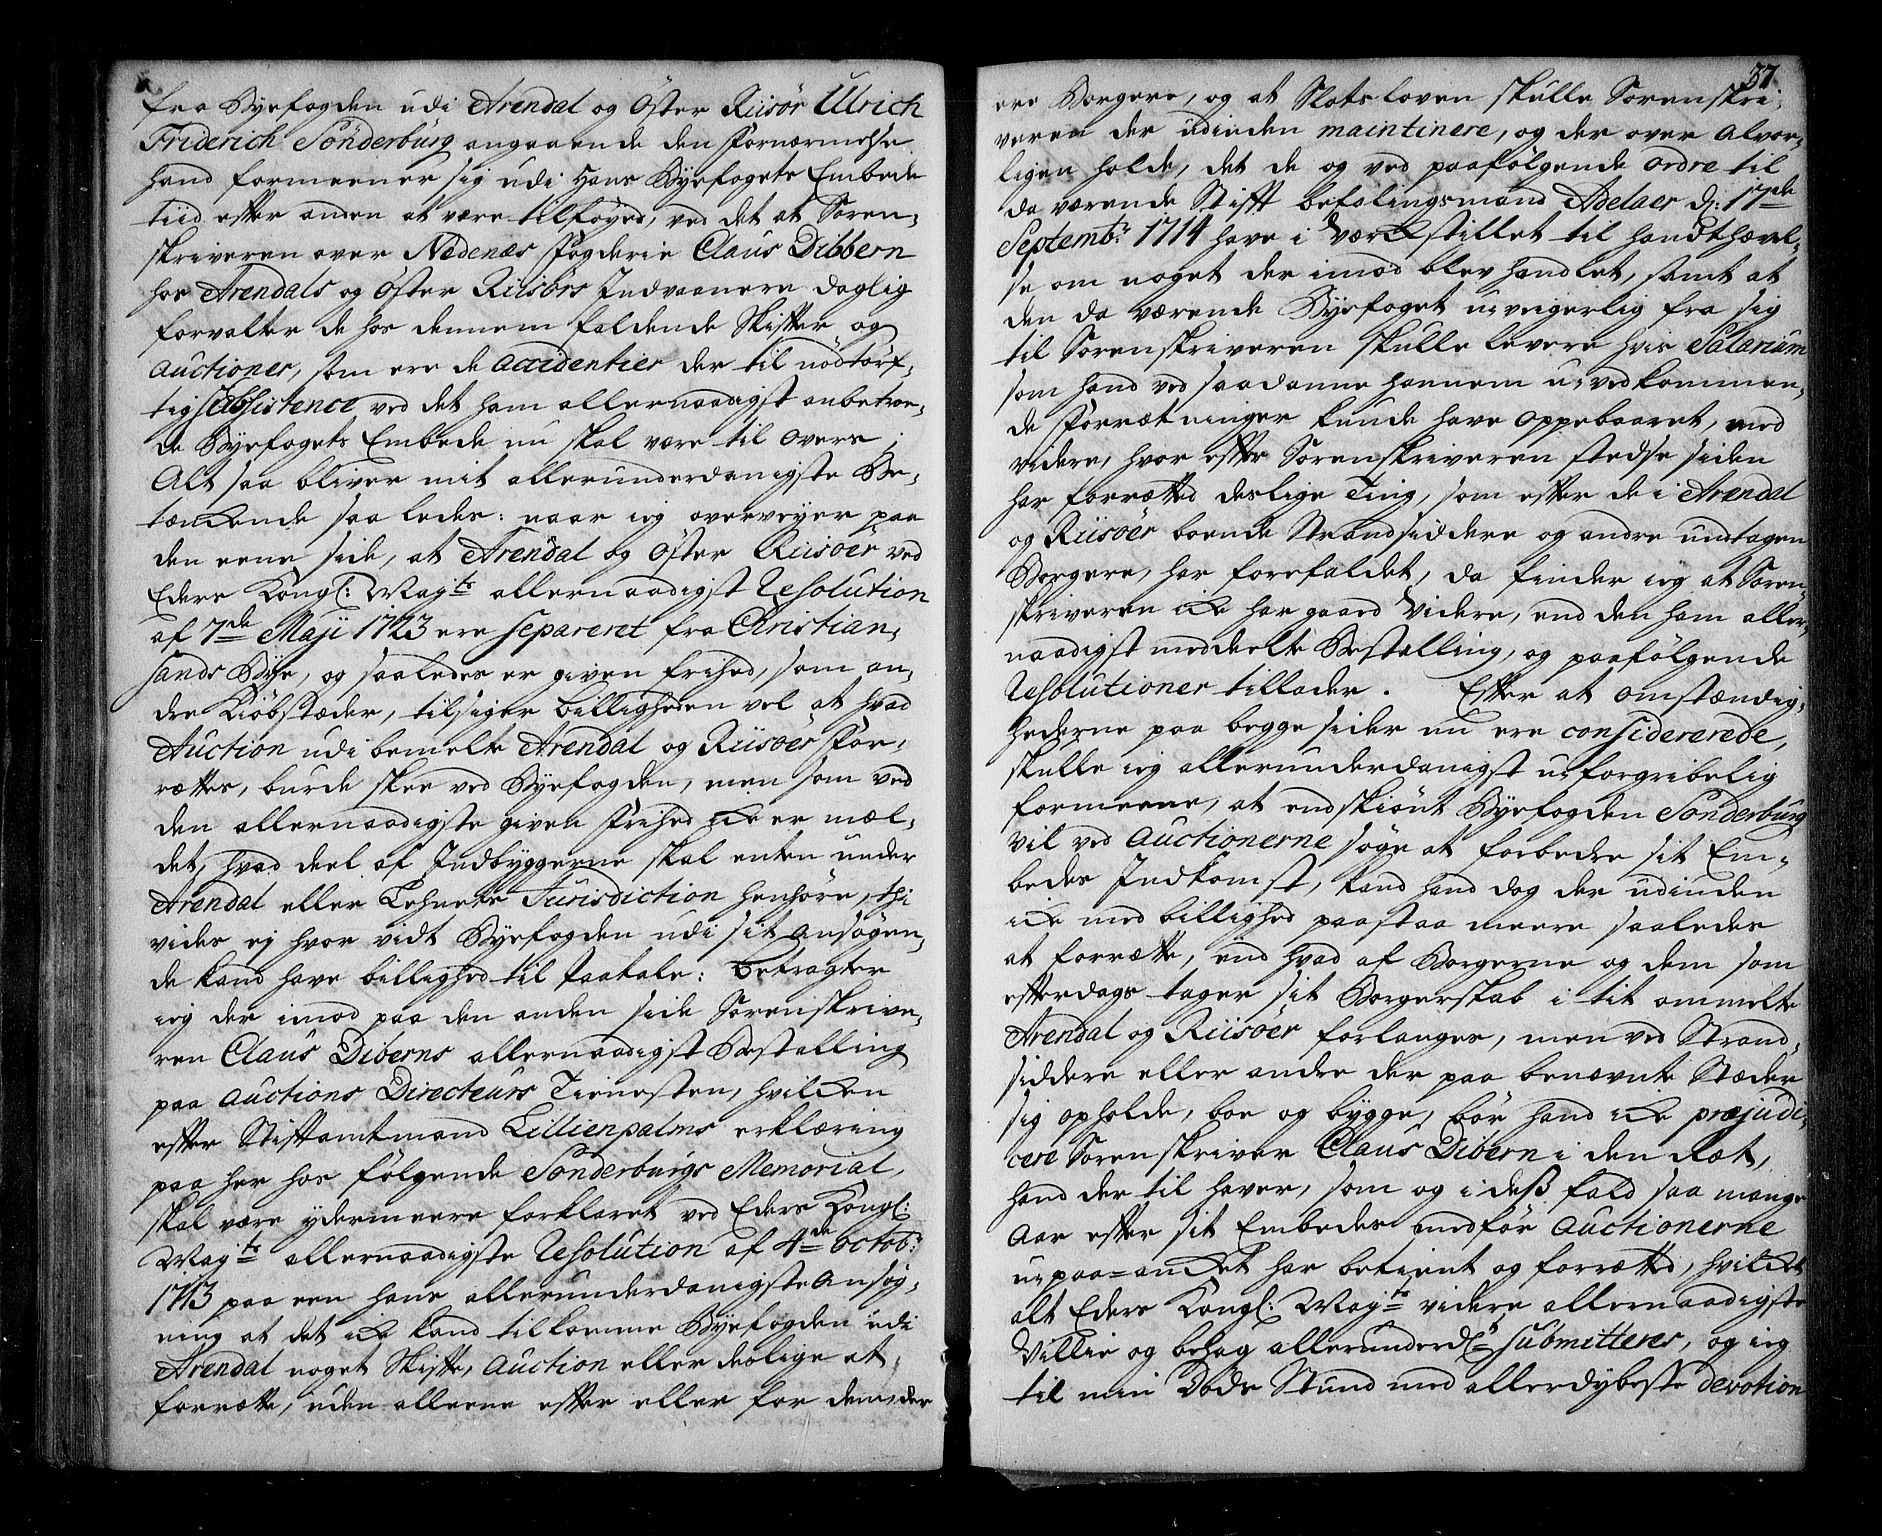 fra Byefogden udi Arendal og Öster Riisör Ulrich
Friderich Sönderburg angaaende den Fornærmelse
hand formeener sig udi Hans Byefogets Embede
tiid efter anden at være tilföyed, ved det at Soren-
skriveren over Nedenæs Fogderie Claus Dibbern
hos Arendals og Öster Riisörs Indvaanere daglig
forvalter de hos dennem faldende Skifter og
Auctioner, som ere de Accidentier der til nödtörf-
tig Subsistence ved det ham allernaadigst anbetroe-
de Byefogets Embede nu skal være til overs;
Alt saa bliver mit allerunderdanigste Be-
tænkende saaledes: naar ieg overveyer paa
den eene side, at Arendal og Öster Riisöer ved
Eders Kongl: May:ts allernaadigst Resolution
af 7de Maji 1723 ere separeret fra Christian-
sands Bye, og saaledes er given frihed, som an-
dre Kiöbstæder, tilsiger billigheden vel at hvad
Auction udi bemelte Arendal og Riisöer For-
rettes, burde skee ved Byefogden, men som ved
den allernaadigste given Frihed icke er mæl-
det, hvad deel af Indbyggerne skal enten under
Arendal eller Lehnets Jurisdiction henhöre, thi
vides ej hvor vidt Byefogden udi sit Ansögen-
de kand have billighed til Paatale: betragter
ieg der imod paa den anden side Sorenskrive-
ren Claus Diberns allernaadigst Bestalling
paa Auctions Directeurs Tienesten, hvilcken
efter Stiftamtmand Lillienpalms erklæring
paa her hos fölgende Sönderburgs Memorial,
skal være ydermeere forklaret ved Eders Kongl:
May:ts allernaadigste Resolution af 4de Octob:
1713 paa een hans allerunderdanigste Ansög-
ning at det icke kand tilkomme Byefogden udi
Arendal noget Skifte, Auction eller deslige at
forrette, uden alleene efter eller for dem, der
37
ere Borgere, og at Slotsloven skulle Sorenskri-
veren der udinden maintinere, og der over alvor-
ligen holde, det de og ved paafölgende ordre til
da værende Stift befalingsmand Adelaer d: 17de
Septembr: 1714 have i Værck stillet til handthævel-
se om noget der imod blev handlet, samt at
den da værende Byefoget uveigerlig fra sig
til Sorenskriveren skulle levere hvis Salarium
som hand ved saadanne hannem u-vedkommen-
de Forretninger kunde have oppebaaret, med
videre, hvor efter Sorenskriveren stedse siden
har forrettet deslige Ting, som efter de i Arendal
og Riisöer boende Strandsiddere og andre undtagen
Borgere, har forefaldet, da finder ieg at Soren-
skriveren icke har gaaed videre, end den ham aller-
naadigst meddeelte Bestalling, og paafölgende
Resolutioner tillader. Efter at omstændig-
hederne paa begge sider nu ere considererede,
skulle ieg allerunderdanigst u-forgribelig
formeene, at endskiönt Byefogden Sönderburg
vil ved Auctionerne söge at forbedre sit Em-
bedes Indkomst, kand hand dog der udinden
icke med billighed paastaa meere saaledes
at forrette, end hvad af Borgerne og dem som
efterdags tager sit Borgerskab i tit ommelte
Arendal og Riisöer forlanges, men ved Strand-
siddere eller andre der paa benævnte Stæder
sig opholde, boe og bygge, bör hand icke præjudi-
cere Sorenskriver Claus Dibern i den Ret,
hand der til haver, som og i deß fald saa mange
Aar efter sit Embedes medför Auctionerne
u-paa-ancket har betient og forretted, hvilcket
alt Eders Kongl: May:ts videre allernaadigste
Villie og behag allerunderd:st submitteres, og ieg
til min Döds Stund med allerdybeste devotion